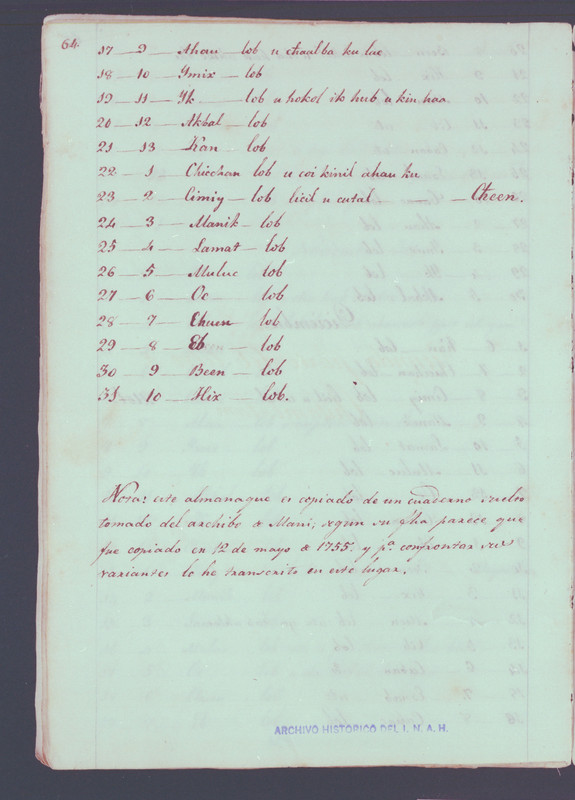 64.
17 — 9 — Ahau — lob u chaulba ku luc
18 — 10 — Ymix — lob
19 — 11 — Yk — lob u hokol ik hub u kin haa
20 — 12 — Akbal — lob
21 — 13 — Kan — lob
22 — 1 — Chicchan lob u coi kinil ahau ku
23 — 2 — Cimiy — lob licil u cutal — Cheen.
24 — 3 — Manik — lob
25 — 4 — Lamat — lob
26 — 5 — Muluc — lob
27 — 6 — Oc — lob
28 — 7 — Chuen lob
29 — 8 — Eb — lob
30 — 9 — Been — lob
31 10 — Hix — lob.
Nota: este almanaque es copiado de un cuaderno suelto
tomado del archibo de Mani; segun su fha parece que
fue copiado en 12 de mayo de 1755. y pa. confrontar sus
variantes lo he transcrito en este lugar.
ARCHIVO HISTORICO DEL I. N. A. H.